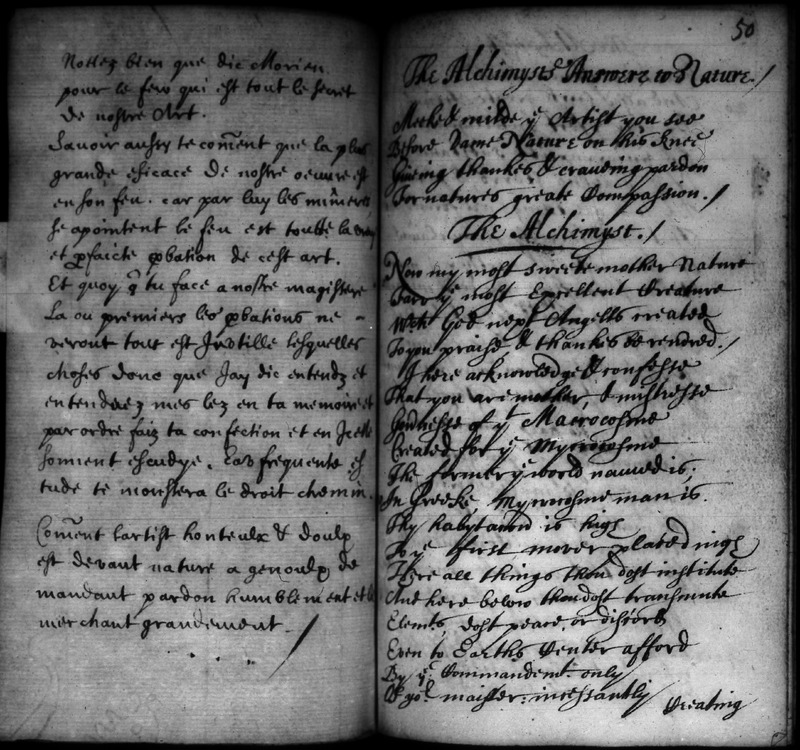 Nottez bien que dic Morien
pour le feu qui est tout le secret
de nostre Art.
Savoir aussy te com̃ent que la plus
grande eficace de nostre oeuvre est
en son feu. car par luy les mineres
se apointent le feu est toutte la
et pfaicte pbation de cest art.
Et quoy q̃ tu face a nostre magistere
La ou premiers les pbations ne
veront tout est Inutille lesquelles
choses donc que Jay dic entendz et
entenduez mes lez en ta memoire et
par ordre faiz ta confection et en Icelle
sonnent estudye. Car frequente es
tude te monstera le droit chemin.
Com̃ent lartist honteulx & doulx
est devant nature a genoulx de
mandant pardon humblement et la
merchant grandement /
50
The Alchimysts Answere to Nature. /
Meeke & milde ye Artist you see
Before Dame Nature on his knee
Giveing thankes & craveing pardon
For natures greate Compassion. /
The Alchimyst. /
Now my most sweete mother Nature
Farr ye most Excellent Creature
With God next Angells created
To you praise & thankes be rendred. /
I here acknowledge & confesse
That you are mother & mistresse
Goddesse of yt Macrocosme
Created for ye Mycrocosme
The former ye world named is;
In Greeke Mycrocosme man is.
Thy habytacion is high
To ye first mover placed nigh
There all things thou dost institute
And here below thou dost transmute
Elemts dost peace or discord
Even to Earths Center afford
By ye Commandemt. only
Of yor maister. incessantly
Creating